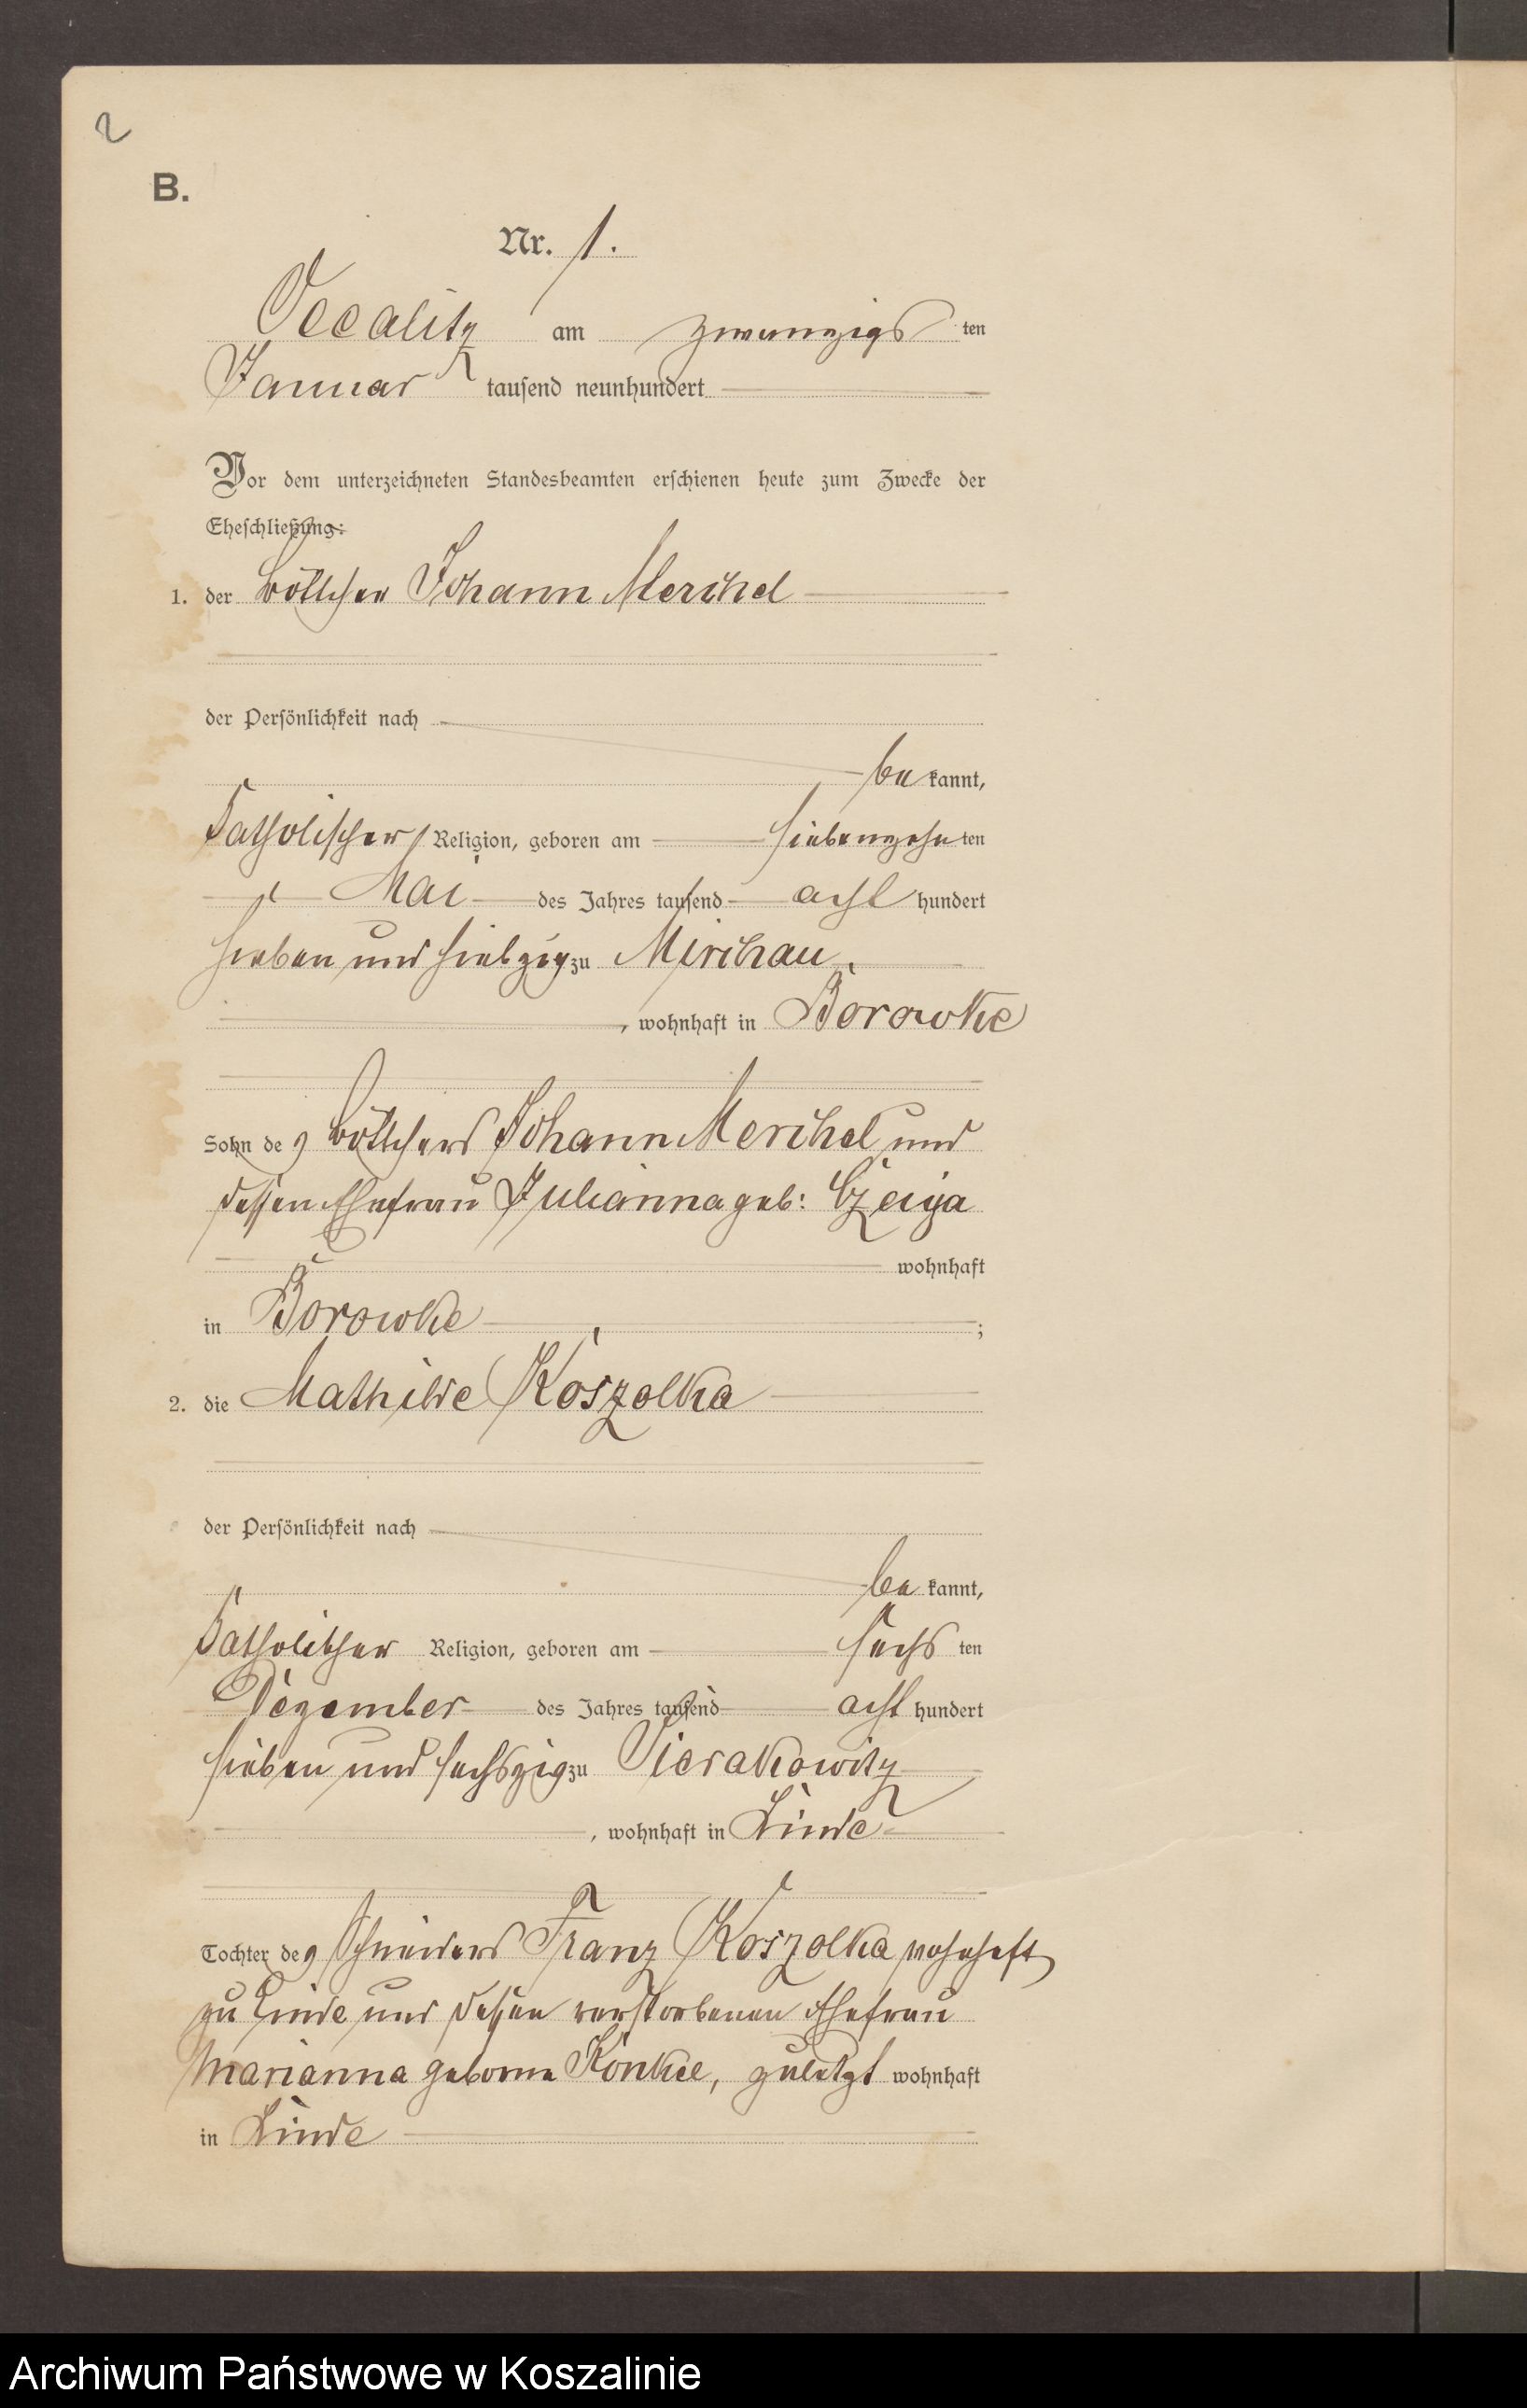 2
B.
Nr. 1.
Occalitz am zwanzigs ten
Januar tausend neunhundert
Vor dem unterzeichneten Standesbeamten erschienen heute zum Zwecke der
Eheschließung:
1. der Böttcher Johann Merchel
der Persönlichkeit nach
be kannt,
Katholischer Religion, geboren am siebenzehn ten
Mai des Jahres tausend acht hundert
sieben und siebzig zu Mirchau
, wohnhaft in Borowke
Sohn des Böttchers Johann Merchel und
dessen Ehefrau Julianna geb: Czeiga
wohnhaft
in Borowke ;
2. die Mathilde Koszalka
der Persönlichkeit nach
be kannt,
Katholischer Religion, geboren am sechs ten
Dezember des Jahres tausend acht hundert
sieben und sechszig zu Sierakowitz
, wohnhaft in Linde
Tochter des Schneiders Franz Koszalka wohnhaft
zu Linde und dessen verstorbenen Ehefrau
Marianna geborne Konkel, zuletzt wohnhaft
in Linde
Archiwum Państwowe w Koszalinie